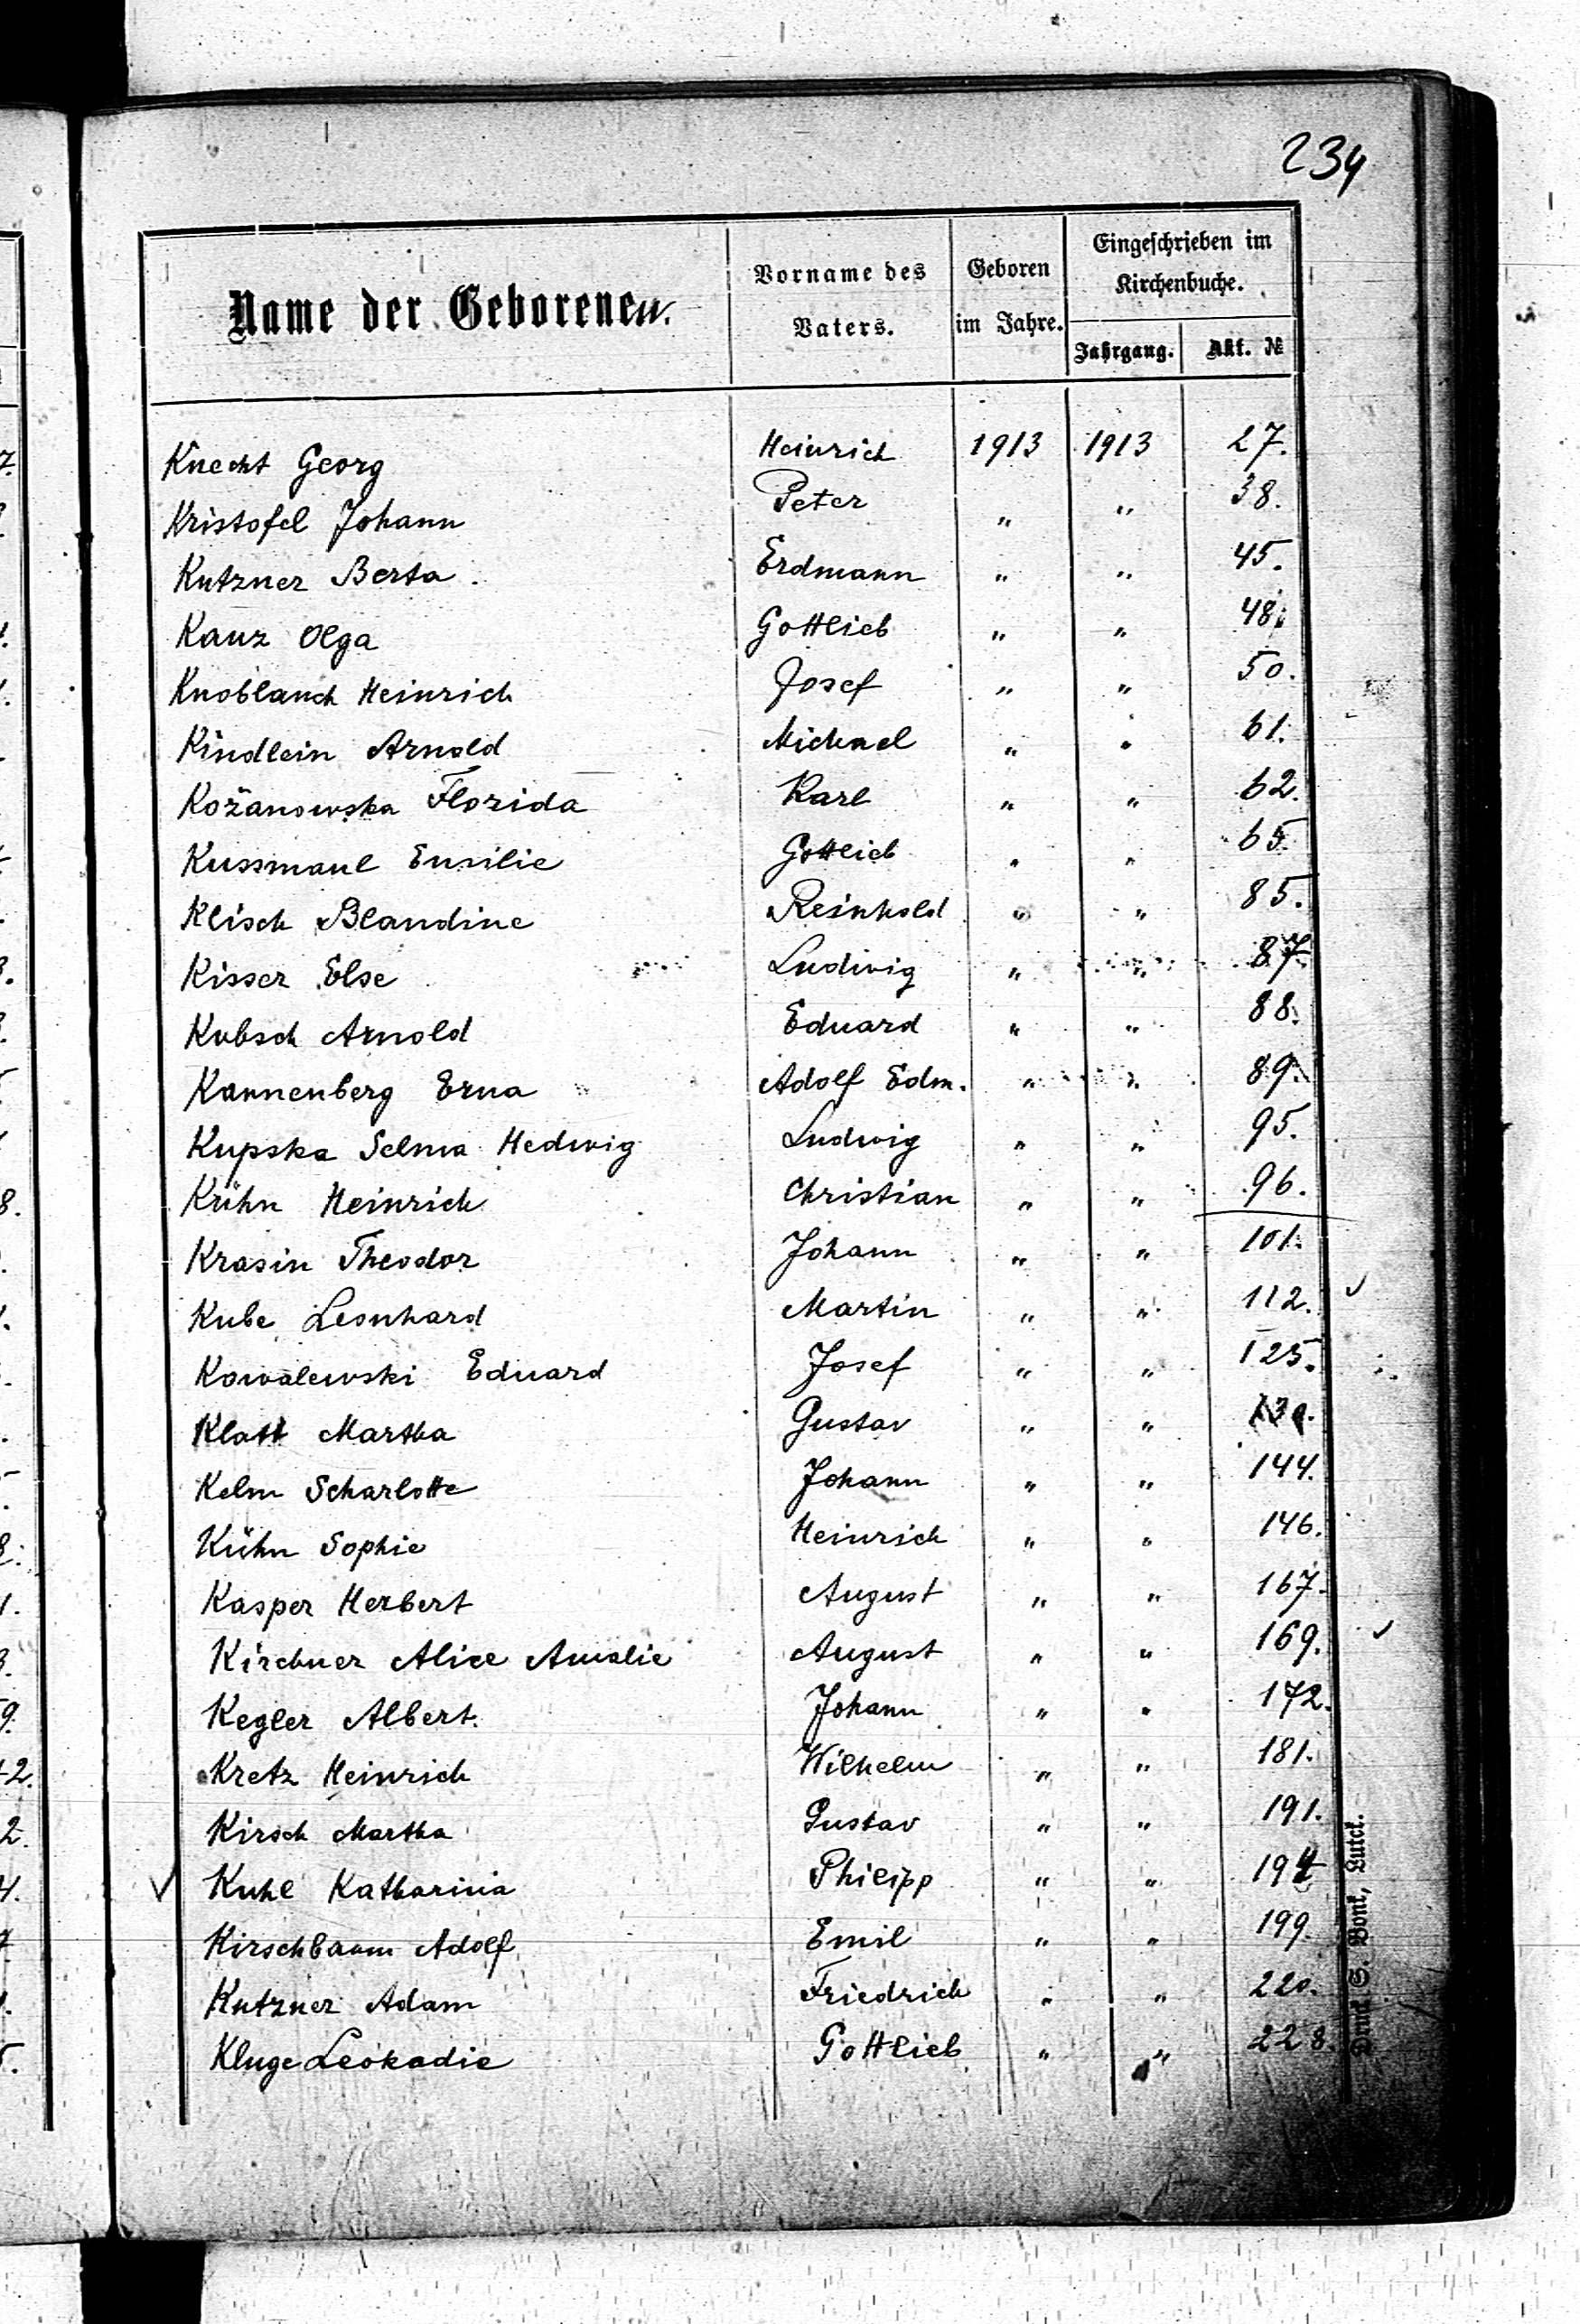 234
Name der Geborenen.
Vorname des Vaters.
Geboren im Jahre.
Eingeschrieben im Kirchenbuche.
Jahrgang.
Akt. №
Knecht Georg Heinrich 1913 1913 27.
Kristofel Johann Peter " " 38.
Kutzner Berta. Erdmann " " 45.
Kanz Olga Gottlieb " " 48.
Knoblauch Heinrich Josef " " 50.
Kindlein Arnold Michael " " 61.
Kožanowska Florida Karl " " 62.
Kussmaul Emilie Gottlieb " " 65.
Klisch Blandine Reinhold " " 85.
Kisser Else Ludwig " " 87.
Kubsch Arnold Eduard " " 88.
Kannenberg Erna Adolf Edm. " " 89.
Kupska Selma Hedwig Ludwig " " 95.
Kühn Heinrich Christian " " 96.
Krasin Theodor Johann " " 101.
Kube Leonhard Martin " " 112. ✓
Kowalewski Eduard Josef " " 125.
Klatt Martha Gustav " "
Kelm Scharlotte Johann " " 144.
Kühn Sophie Heinrich " " 146.
Kasper Herbert August " " 167.
Kirchner Alice Amalie August " " 169. ✓
Kegler Albert. Johann " " 172.
Kretz Heinrich Wilhelm " " 181.
Kirsch Martha Gustav " " 191.
✓ Kuhl Katharina Philipp " " 194
Kirschbaum Adolf Emil " " 199.
Kutzner Adam Friedrich " " 220.
Kluge Leokadie Gottlieb " " 228.
Druck S. Bonk, Lutck.